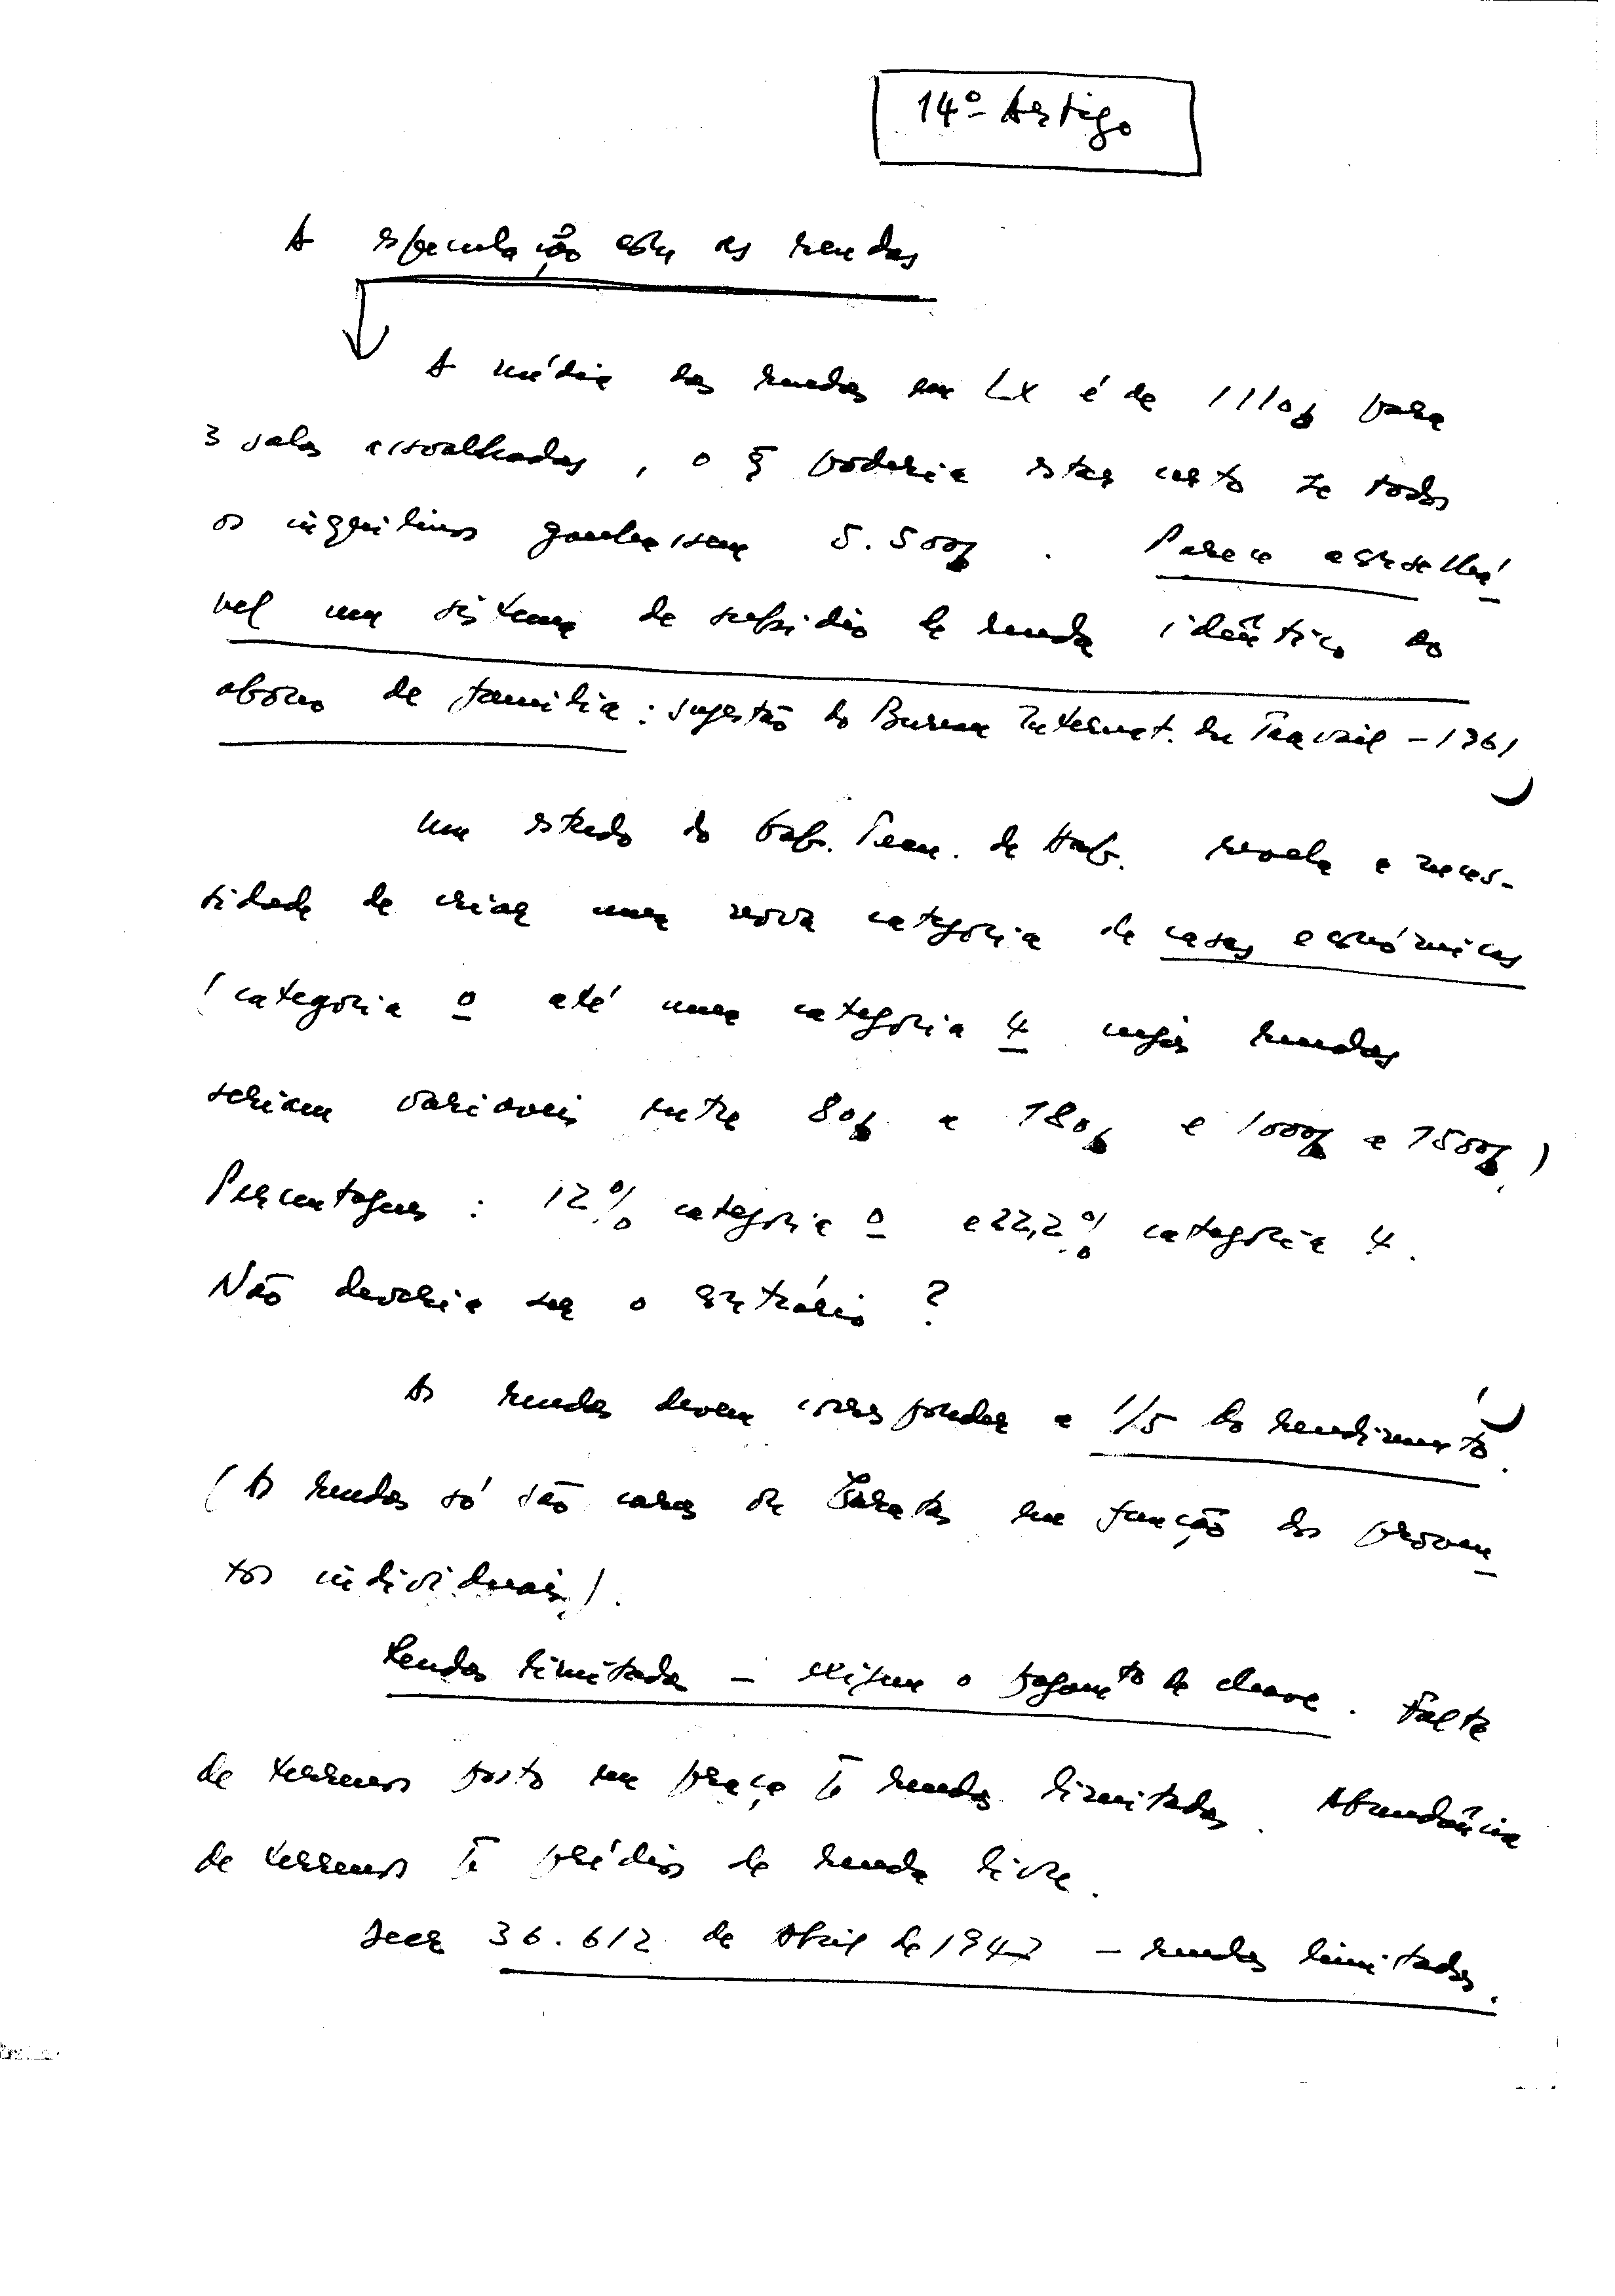 14º Artigo
A especulação com as rendas
A média das rendas em Lx é de 1110$ para
3 salas assoalhadas, o q̄ poderia estar certo se todos
os inquilinos ganhassem 5.500$. Parece aconselhá
vel um sistema de subsídio de renda idêntico ao
abono de família: sugestão do Bureau Internat. du Travail - 1961
Um estudo do Gab. Tecn. de Hab. revela a neces-
sidade de criar uma nova categoria de casas económicas
(categoria 0 até uma categoria 4 cujas rendas
seriam variáveis entre 80$ a 180$ e 1000$ a 1500$)
Percentagens: 12% categoria 0 e 22,2% categoria 4.
Não deveria ser o contrário?
As rendas devem corresponder a 1/5 do rendimento.
(As rendas só são caras ou baratas em função dos proven
tos individuais).
Rendas limitadas - exigem o pagamto de chave. Falta
de terrenos posto em praça p̄ rendas limitadas. Abundância
de terrenos p̄ prédios de renda livre.
36.612 de Abril de 1947 - rendas limitadas.